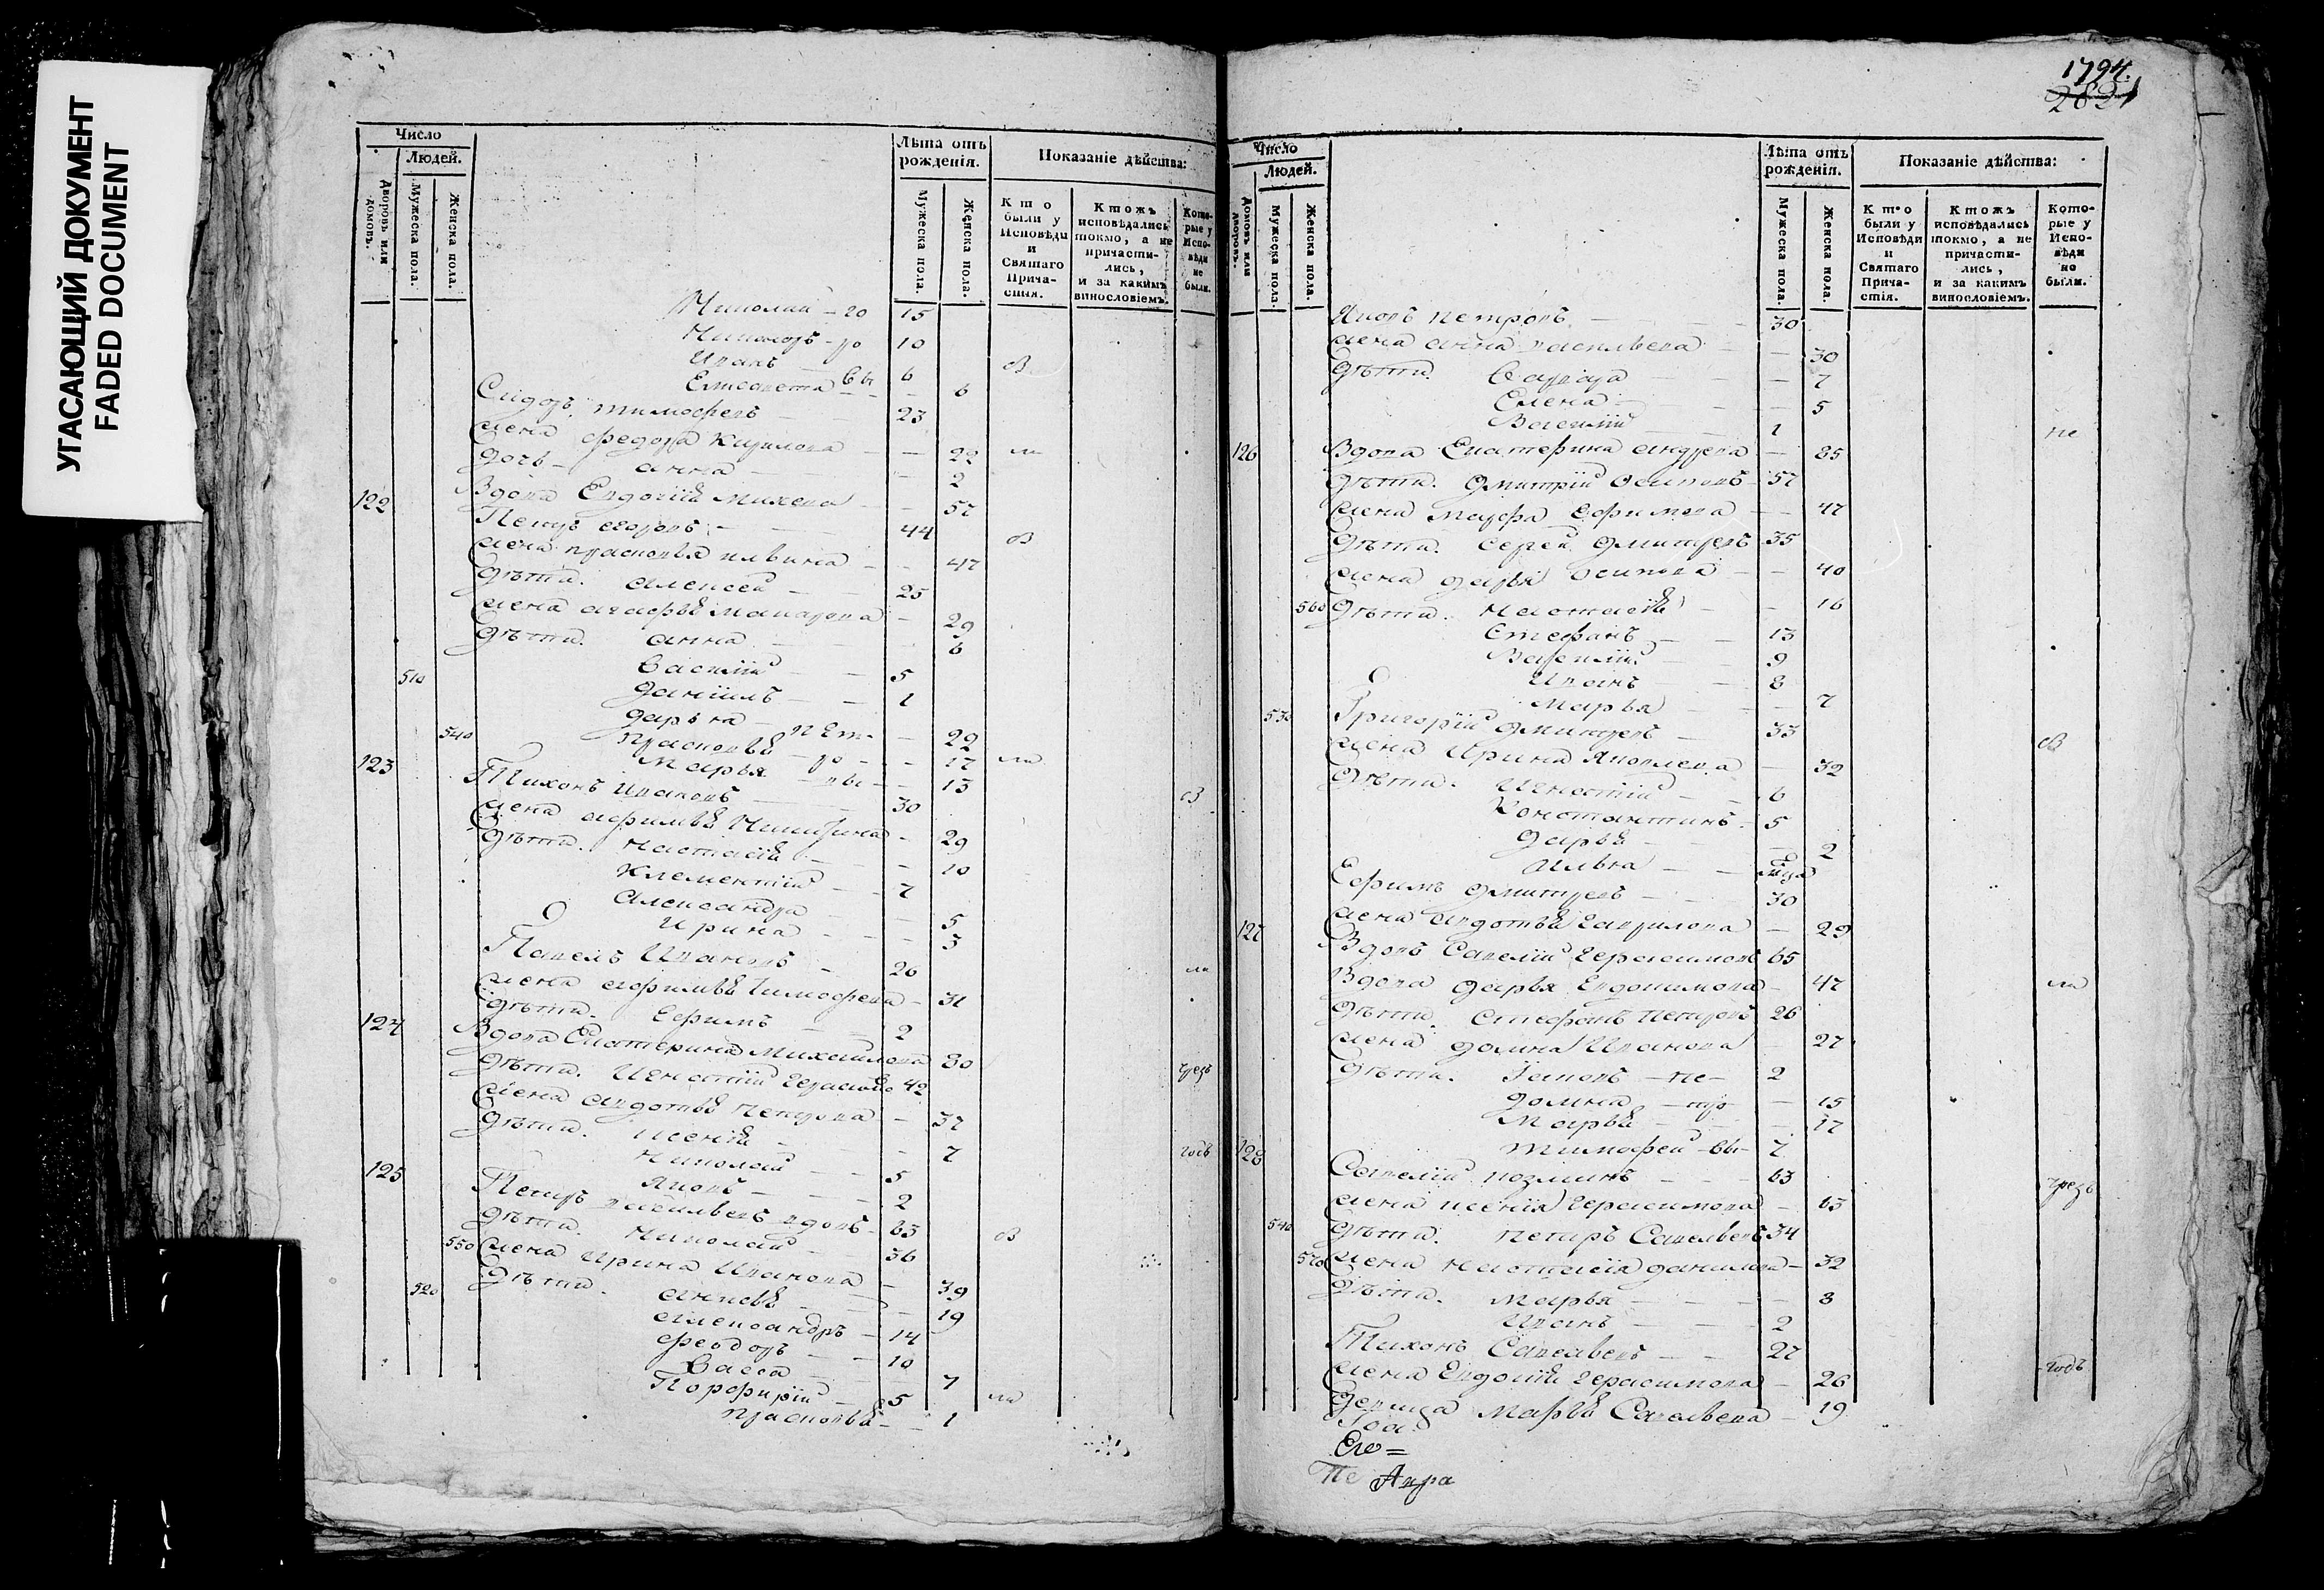 УГАСАЮЩИЙ ДОКУМЕНТ
FADED DOCUMENT
Число
Людей.
Дворовъ или домовъ.
Мужеска пола.
Женска пола.
Лѣта отъ рожденія.
Мужеска пола.
Женска пола.
Показаніе дѣйства:
Кто были у Исповѣди и Святаго Причастія.
Ктожъ исповѣдались токмо, а не причастились, и за какимъ винословіемъ.
Которые у Исповѣди не были.
Николай - го 15
10
Иванъ 6
Елисавета 6
Сидоръ Тимофеевъ 23
жена Федора Кирилова — 22
дочь - анна — 2
122 Вдова Евдокія Михеева 57
Петръ егоровъ 44
жена прасковья ильина 47
дѣти. алексей 25
жена агафья Макарова 29
дѣти. анна 6
510 Василій 5
даніилъ 1
дарья 22
540 прасковья 17
марья 13
123 Тихонъ Ивановъ 30
жена Никитина 29
дѣти. настасія 10
Климентій 7
александра 5
Ирина 3
Павелъ Ивановъ 26
жена Тимофеева 31
дѣти. Ефимъ 2
124 Вдова Екатерина Михайлова 80
дѣти. Игнатій 42
жена авдотья петрова 37
дѣти. ксенія 7
Николай 5
Яковъ 2
125 Петръ васильевъ вдовъ 63
дѣти. Николай 36
550 жена Ирина Иванова 39
520 дѣти. 19
александръ 14
феодоръ 10
Васса 7
Порфирій 5
прасковья 1
1794.
Число
Людей.
Домовъ или дворовъ.
Мужеска пола.
Женска пола.
Лѣта отъ рожденія.
Мужеска пола.
Женска пола.
Показаніе дѣйства:
Кто были у Исповѣди и Святаго Причастія.
Ктожъ исповѣдались токмо, а не причастились, и за какимъ винословіемъ.
Которые у Исповѣди не были.
Яковъ петровъ 30
жена анна васильева 30
дѣти. Варвара 7
Елена 5
Василій 1
126 Вдова Екатерина андреева 85
дѣти. дмитрій осиповъ 57
жена марфа ефимова 47
дѣти. сергей дмитревъ 35
жена дарья осипова 40
560 дѣти. настасія 16
Стефанъ 13
Василій 9
Иванъ 8
Марья 7
530 Григорій дмитревъ 33
жена Ирина Яковлева 32
дѣти. Игнатій 6
Константинъ 5
дарья 2
Илья
Ефимъ дмитревъ 30
жена авдотья гаврилова 29
127 Вдовъ Савелій герасимовъ 65
Вдова дарья Евдокимова 47
дѣти. стефанъ петровъ 26
жена домна Иванова 27
дѣти. Іаковъ 2
домна 15
Марья 17
тимофей 7
128 Савелій козминъ 63
жена ксенія герасимова 63
540 дѣти. петръ Савельевъ 34
570 жена настасія данилова 32
дѣти. марья 8
Иванъ 2
Тихонъ Савельевъ 27
жена Евдокія герасимова 26
девица марья Савельева 19
Его=